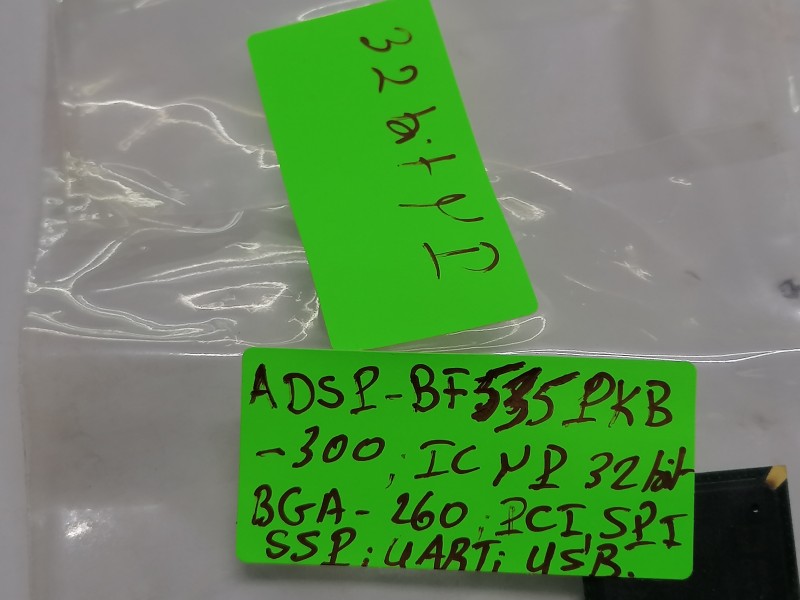 32 bit μP
ADSP-BF535PKB
-300; IC μP 32 bit
BGA-260; PCI SPI
SSP; UART; USB.